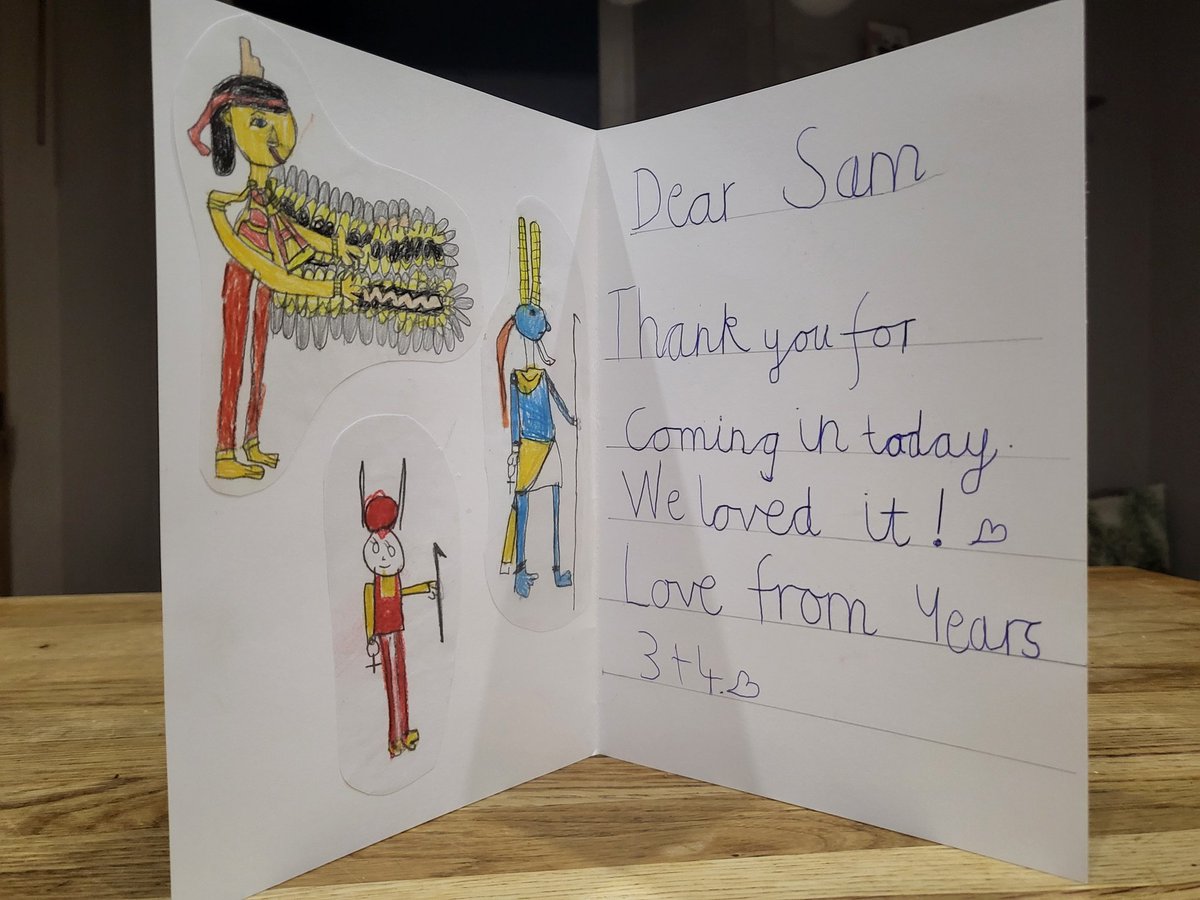 Dear Sam
Thank you for
Coming in today.
We loved it! ♡
Love from Years
3+4. ♡